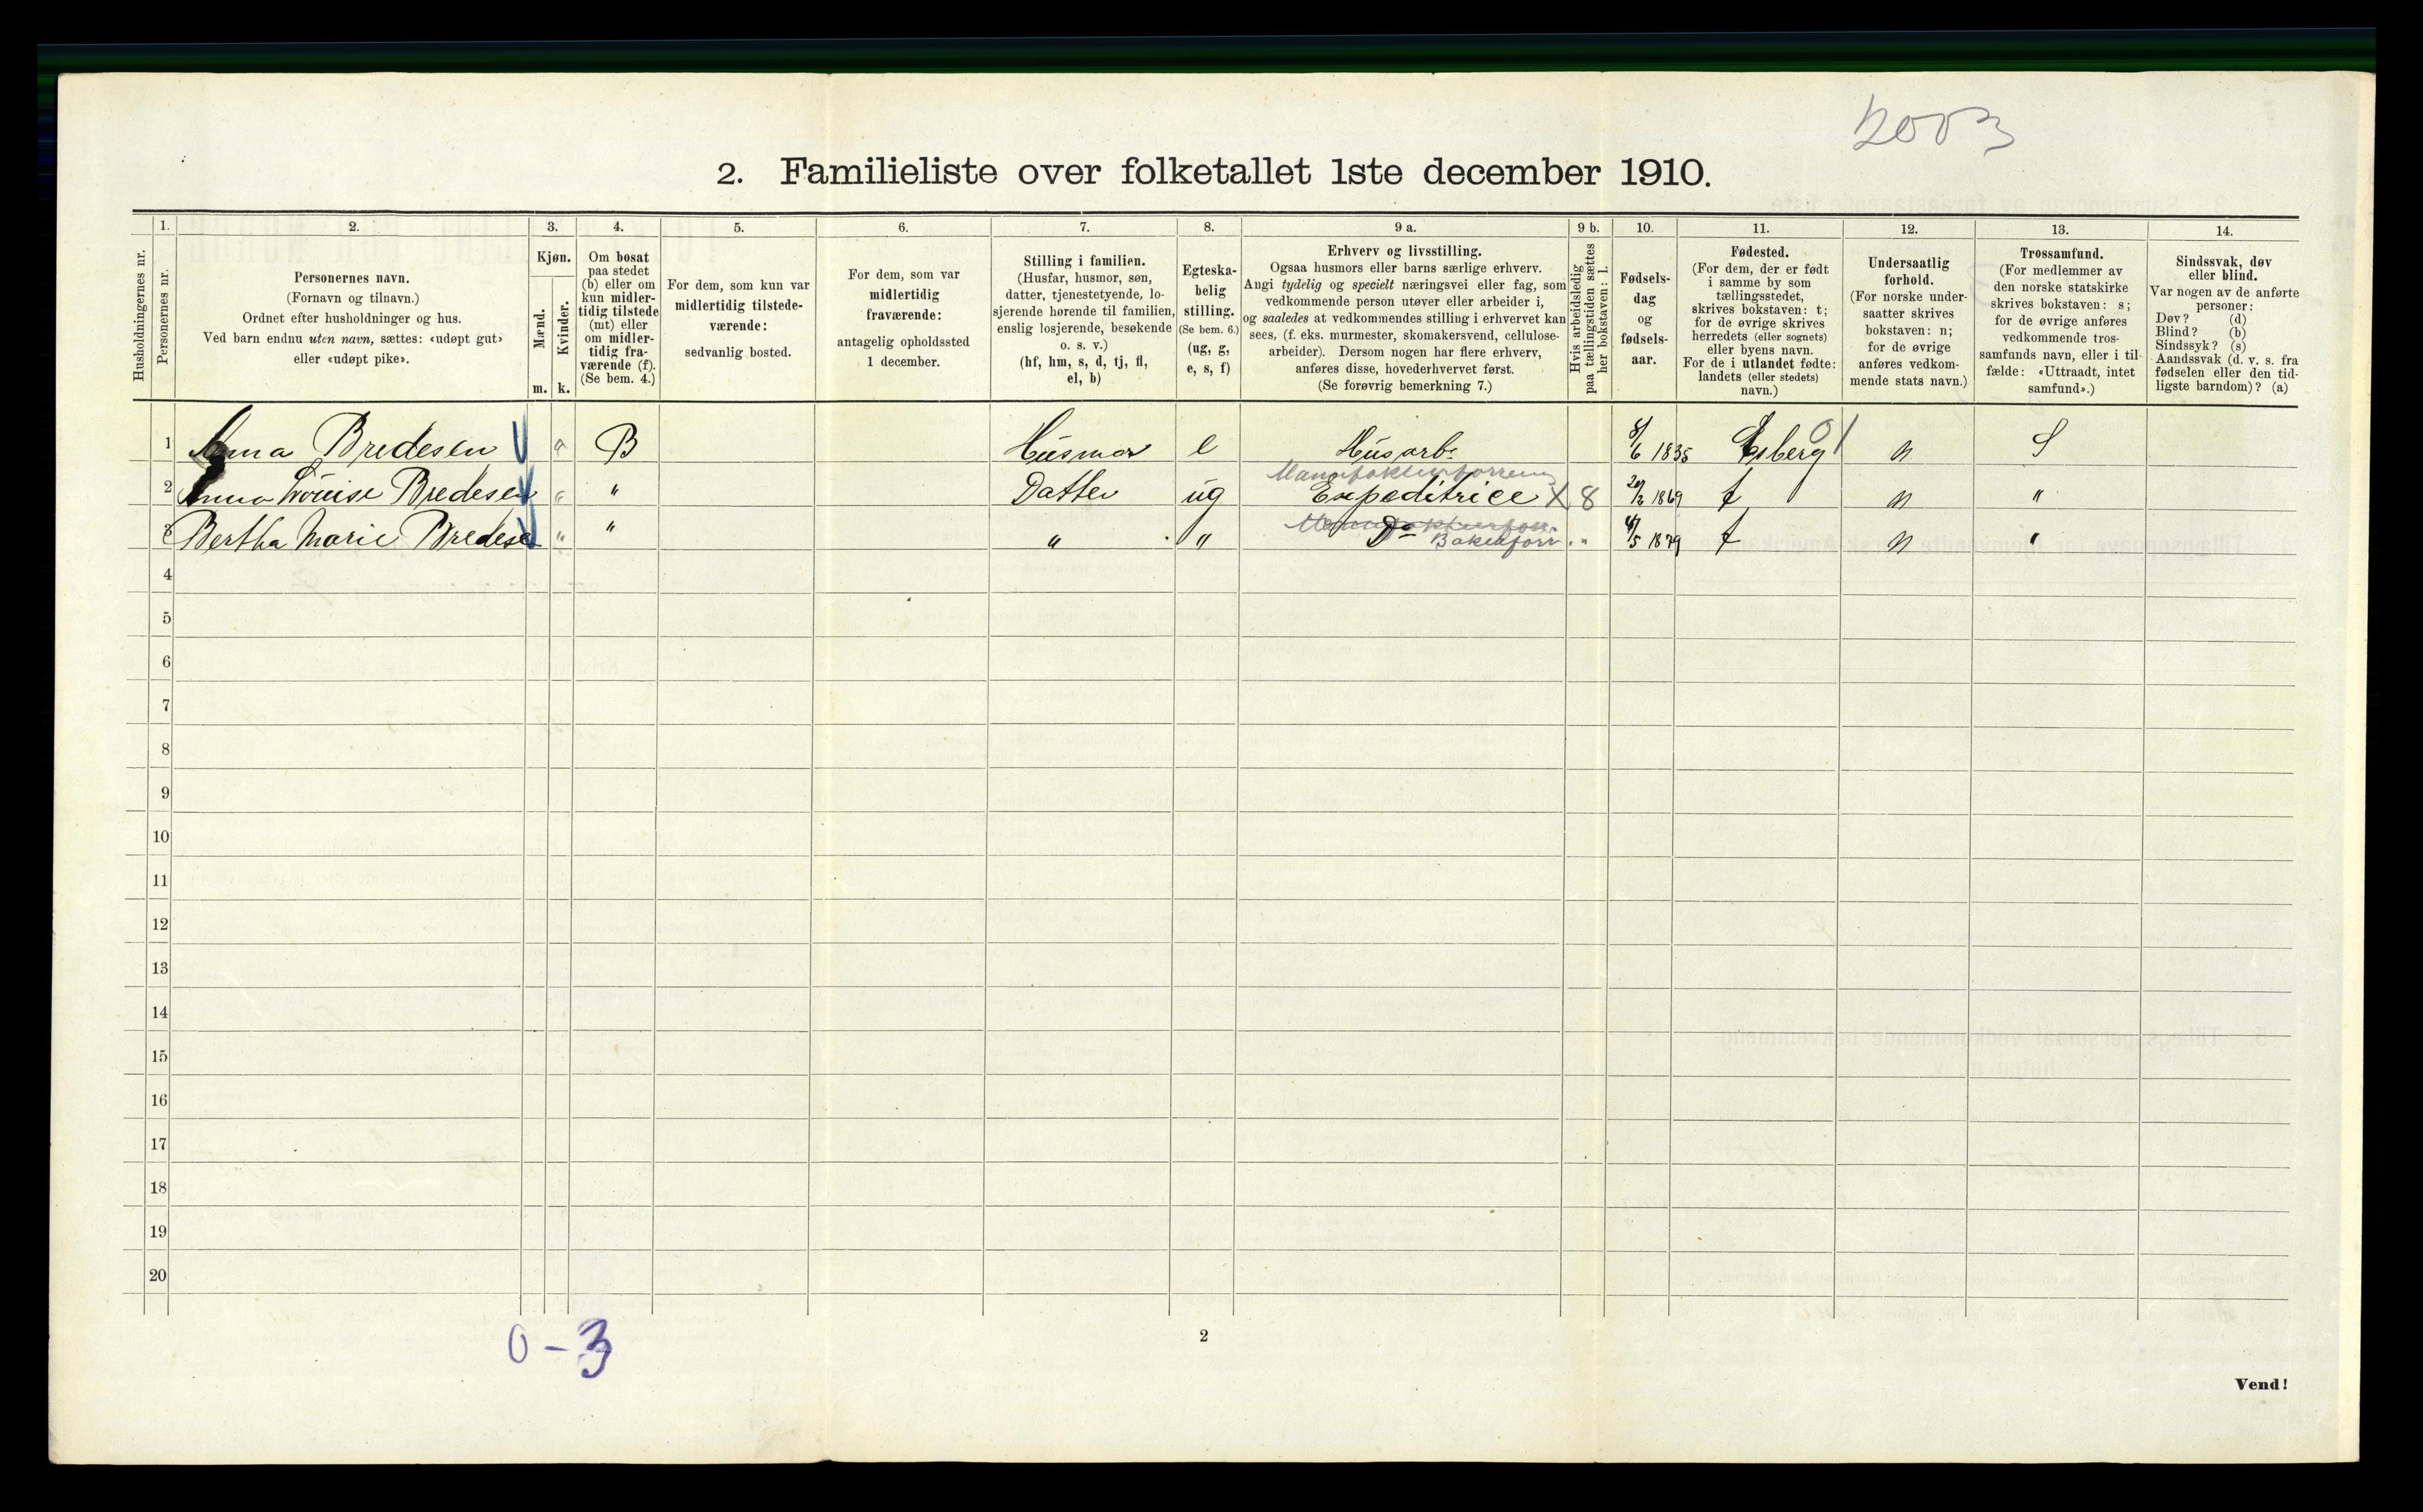 2003
2. Familieliste over folketallet 1ste december 1910.
Husholdningernes nr.
1.
Personernes nr.
2.
Personernes navn.
(Fornavn og tilnavn.)
Ordnet efter husholdninger og hus.
Ved barn endnu uten navn, sættes: «udøpt gut»
eller «udøpt pike».
3.
Kjøn.
Mænd.
Kvinder.
m. k.
4.
Om bosat
paa stedet
(b) eller om
kun midler-
tidig tilstede
(mt) eller
om midler-
tidig fra-
værende (f).
(Se bem. 4.)
5.
For dem, som kun var
midlertidig tilstede-
værende:
sedvanlig bosted.
6.
For dem, som var
midlertidig
fraværende:
antagelig opholdssted
1 december.
7.
Stilling i familien.
(Husfar, husmor, søn,
datter, tjenestetyende, lo-
sjerende hørende til familien,
enslig losjerende, besøkende
o. s. v.)
(hf, hm, s, d, tj, fl,
el, b)
8.
Egteska-
belig
stilling.
(Se bem. 6.)
(ug, g,
e, s, f)
9 a.
Erhverv og livsstilling.
Ogsaa husmors eller barns særlige erhverv.
Angi tydelig og specielt næringsvei eller fag, som
vedkommende person utøver eller arbeider i,
og saaledes at vedkommendes stilling i erhvervet kan
sees, (f. eks. murmester, skomakersvend, cellulose-
arbeider). Dersom nogen har flere erhverv,
anføres disse, hovederhvervet først.
(Se forøvrig bemerkning 7.)
9 b.
Hvis arbeidsledig
paa tællingstiden sættes
her bokstaven: l.
10.
Fødsels-
dag
og
fødsels-
aar.
11.
Fødested.
(For dem, der er født
i samme by som
tællingsstedet,
skrives bokstaven: t;
for de øvrige skrives
herredets (eller sognets)
eller byens navn.
For de i utlandet fødte:
landets (eller stedets)
navn.)
12.
Undersaatlig
forhold.
(For norske under-
saatter skrives
bokstaven: n;
for de øvrige
anføres vedkom-
mende stats navn.)
13.
Trossamfund.
(For medlemmer av
den norske statskirke
skrives bokstaven: s;
for de øvrige anføres
vedkommende tros-
samfunds navn, eller i til-
fælde: «Uttraadt, intet
samfund».)
14.
Sindssvak, døv
eller blind.
Var nogen av de anførte
personer:
Døv? (d)
Blind? (b)
Sindssyk? (s)
Aandssvak (d. v. s. fra
fødselen eller den tid-
ligste barndom)? (a)
1 Anna Bredesen B Husmor e Husarb. 8/6 1835 Esberg 01 n S
Manufakturforretn
2 Anna Lovise Bredesen " Datter ug Expeditrice X 8 1869 t n "
3 Bertha Marie Bredesen " " " " Do Bakerforr. " /5 1879 t n "
4
5
6
7
8
9
10
11
12
13
14
15
16
17
18
19
20
0-3
2
Vend!